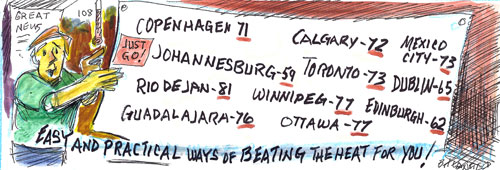 GREAT NEWS
108
JUST GO!
COPENHAGEN 71
JOHANNESBURG-59
RIO DE JAN-81
GUADALAJARA-76
CALGARY-72
TORONTO-73
WINNIPEG-77
OTTAWA-77
MEXICO CITY-73
DUBLIN-65
EDINBURGH-62
EASY AND PRACTICAL WAYS OF BEATING THE HEAT FOR YOU!